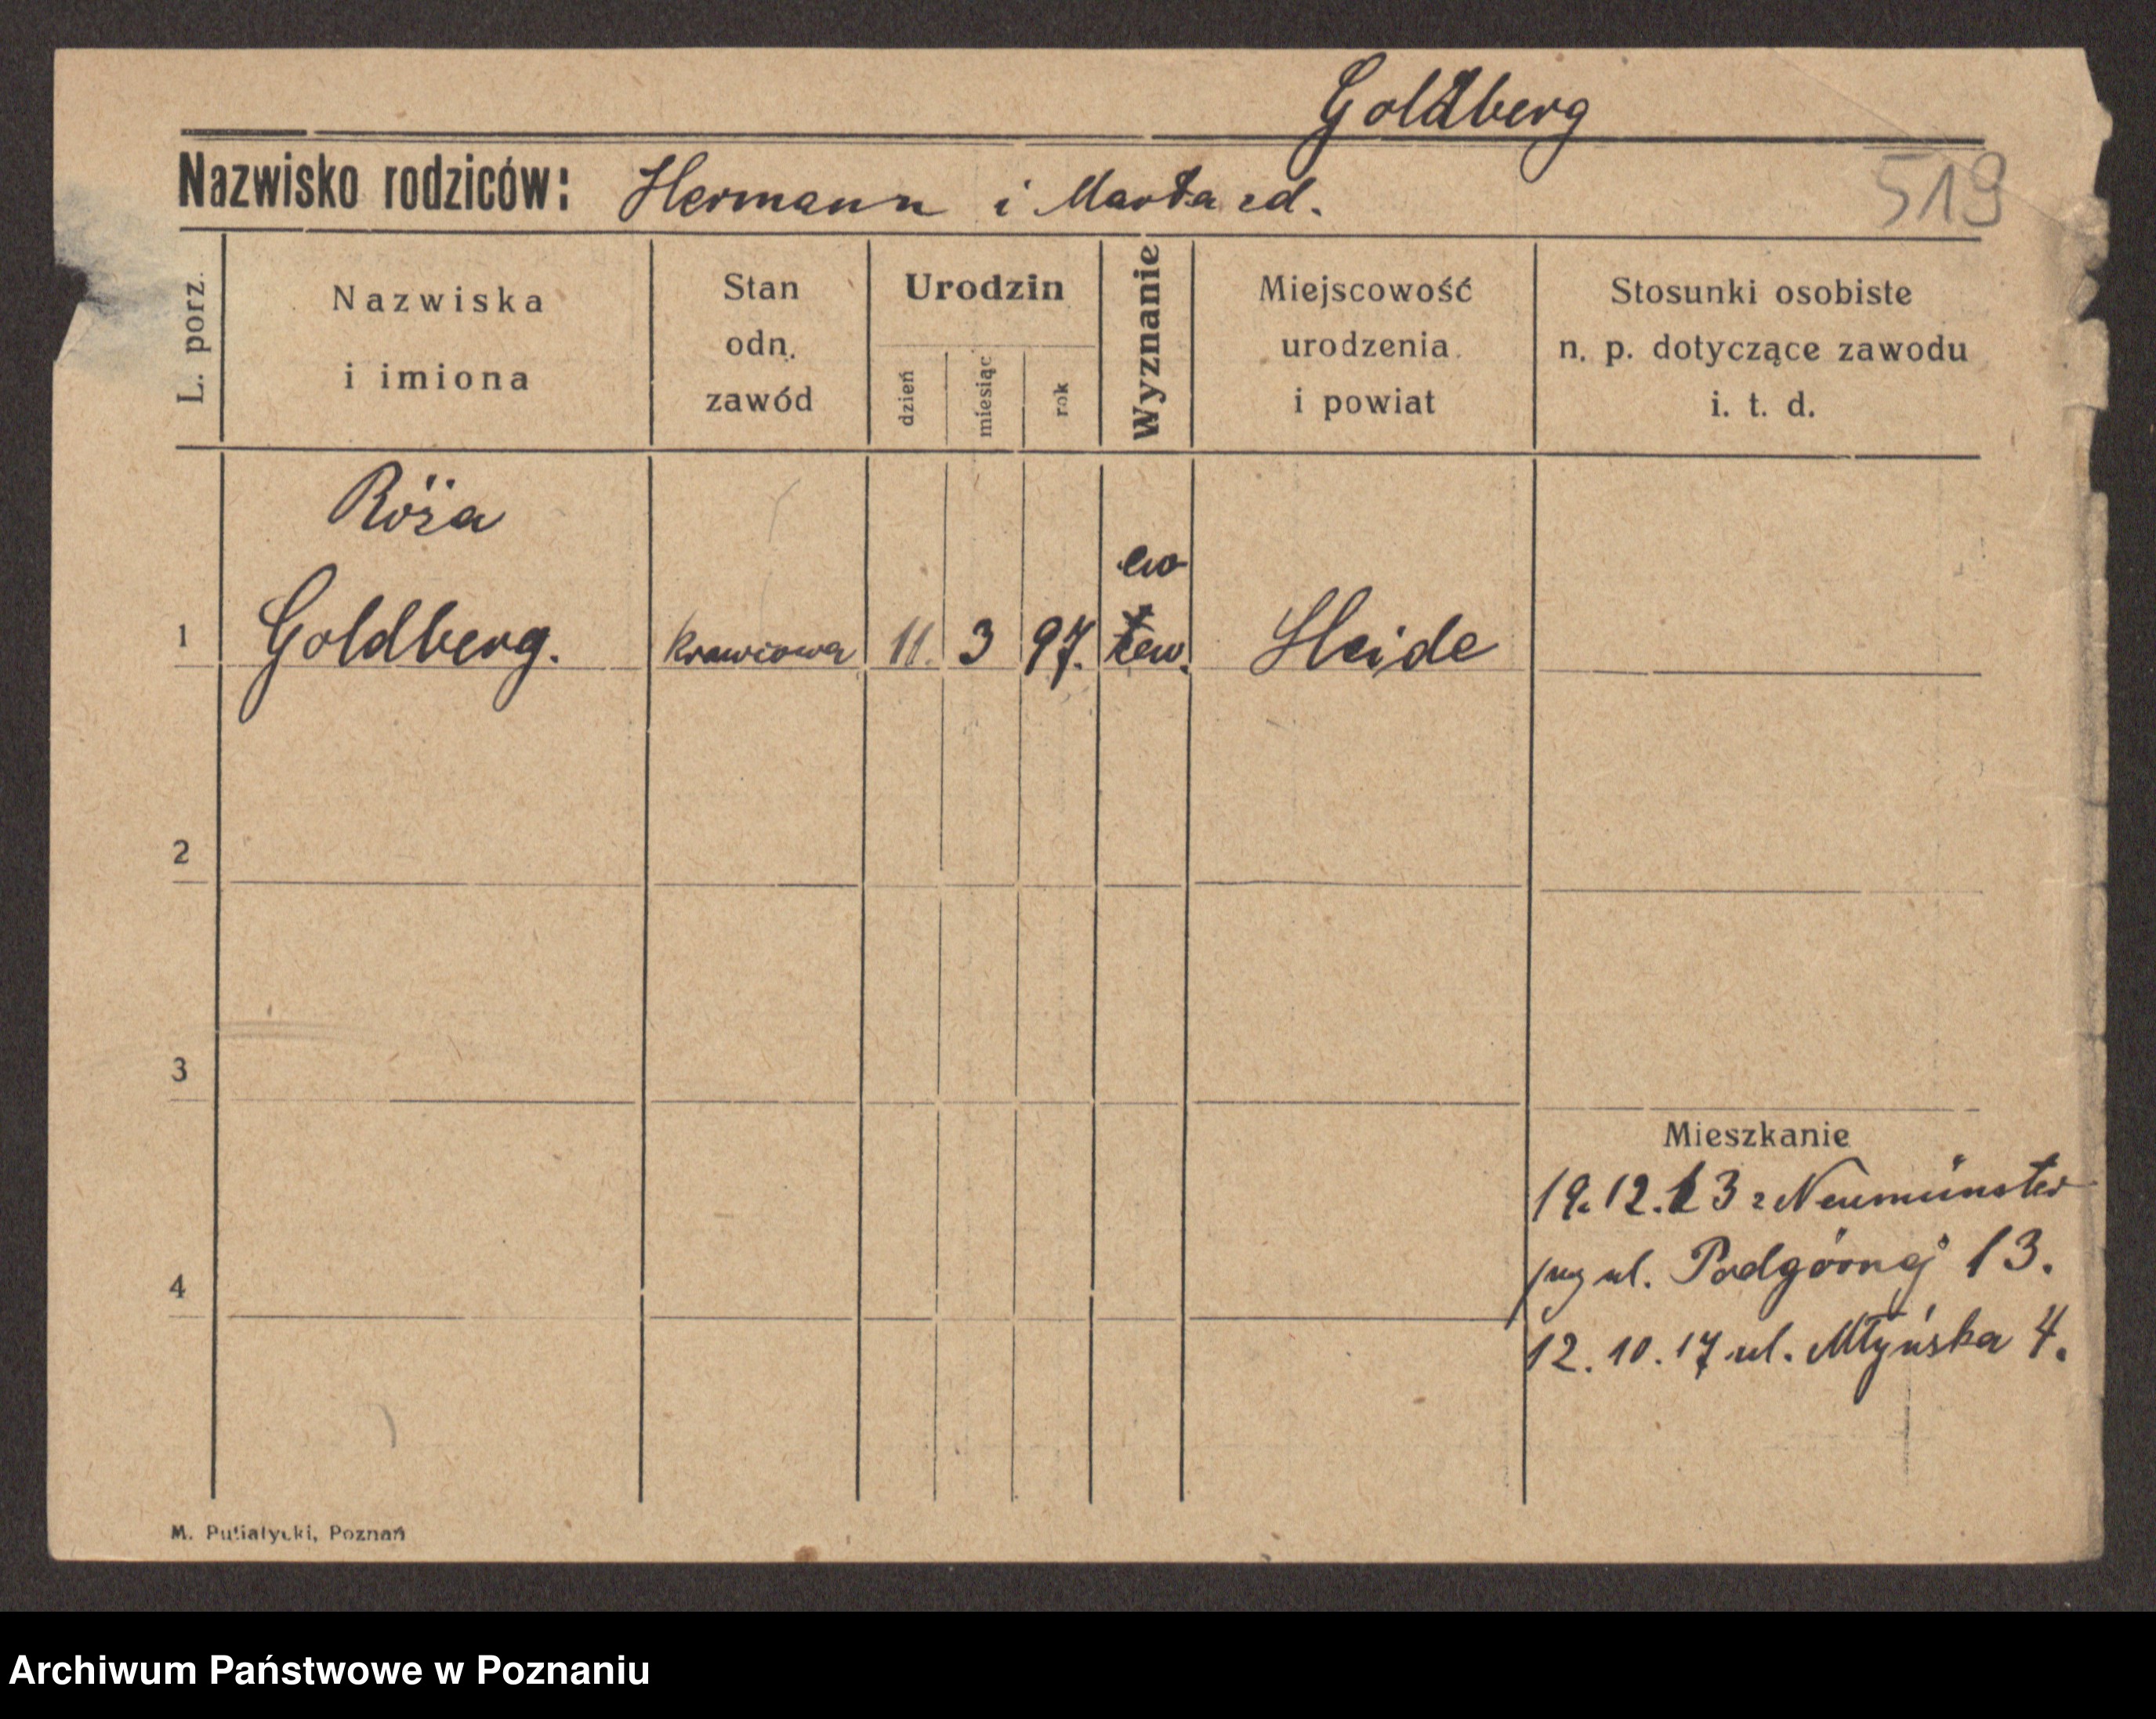 Goldberg
Nazwisko rodziców: Hermann i Marta zd.
519
L. porz.
Nazwiska
i imiona
Stan
odn.
zawód
Urodzin
dzień
miesiąc
rok
Wyznanie
Miejscowość
urodzenia
i powiat
Stosunki osobiste
n. p. dotyczące zawodu
i. t. d.
Róża
ew
1 Goldberg. krawcowa 11. 3 97. Heide
2
3
Mieszkanie
19.12.13 z Neumünster
4
ul. Podgórnej 13.
12.10.17 ul. Młyńska 4.
M. Putiatycki, Poznań
Archiwum Państwowe w Poznaniu